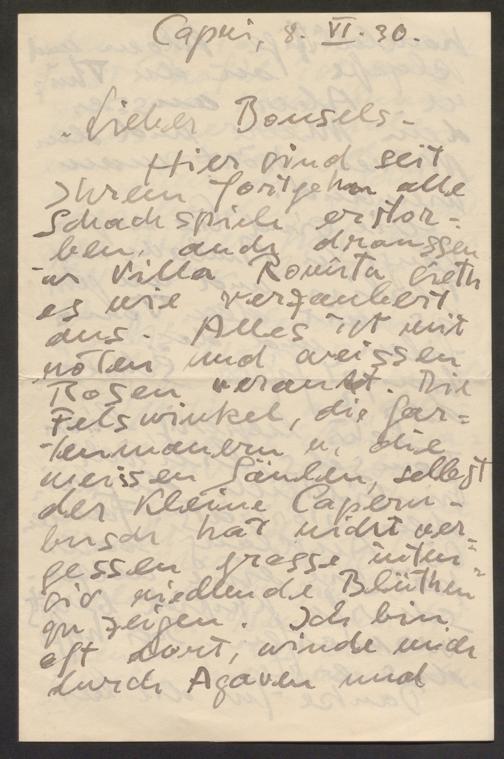 Capri, 8. VI. 30.
Lieber Bonsels-
Hier sind seit
Ihrem Fortgehn alle
Schachspiele erstor-
ben, auch draussen
in Villa sieht
es wie verzaubert
aus. Alles ist mit
roten und weissen
Rosen verankt. Die
Felswinkel, die Gar=
tenmauern u. die
weissen Säulen, selbst
der kleine Capern-
busch hat nicht ver=
gessen grosse inten=
siv riechende Blüthen
zu zeigen. Ich bin
oft dort, winde mich
durch Agaven und